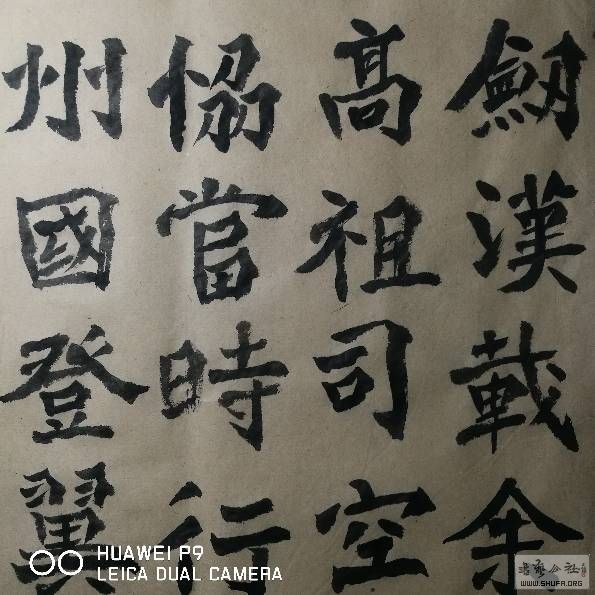 劒漢載余
高祖司空
恊當時行
州國登翼
HUAWEI P9
LEICA DUAL CAMERA
WWW.SHUFA.ORG